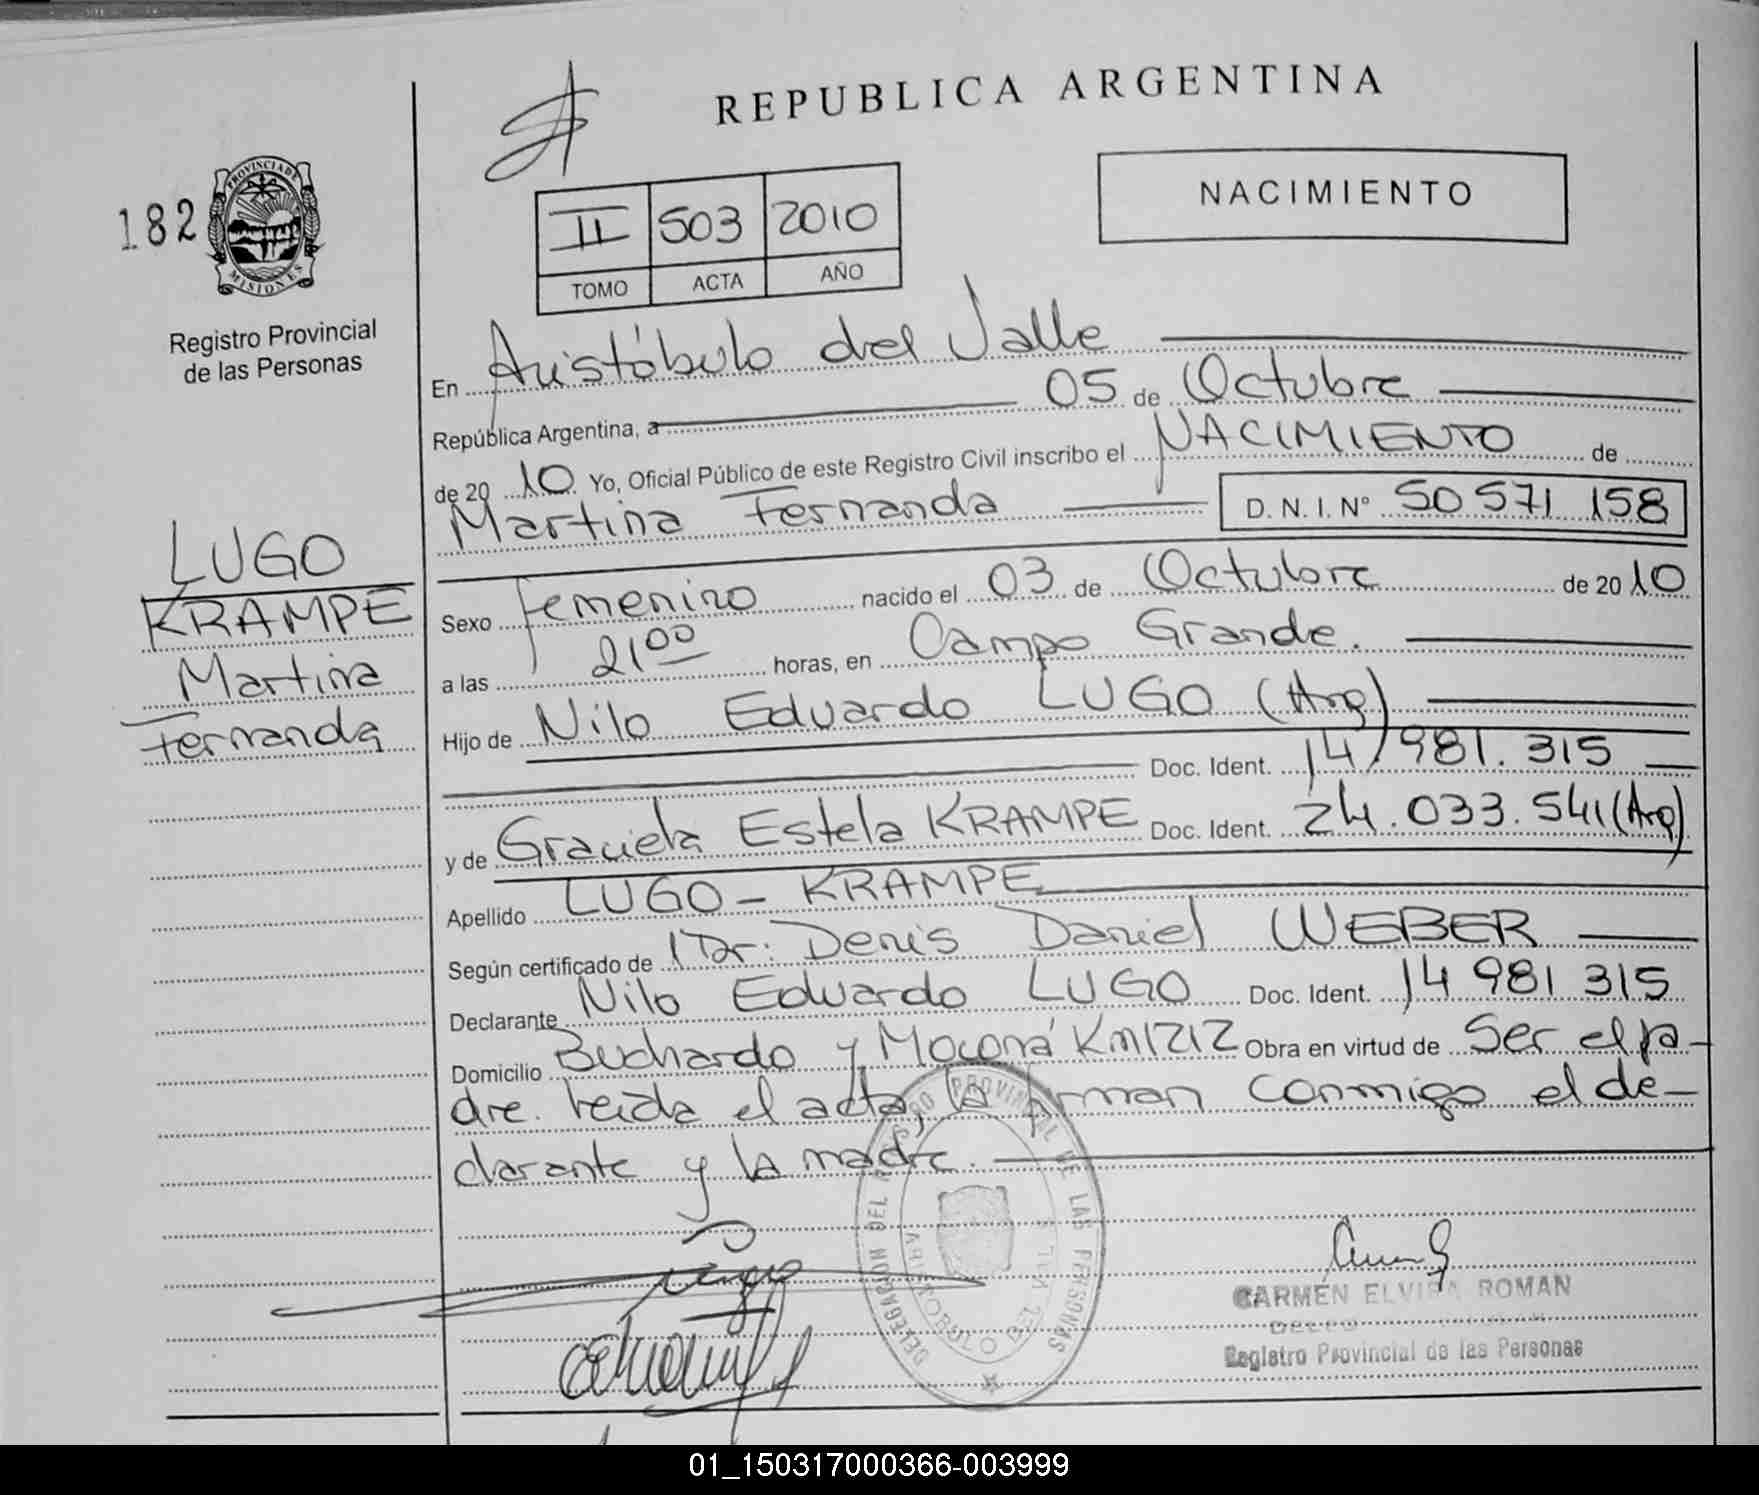 REPUBLICA ARGENTINA
182
PROVINCIA DE
MISIONES
Registro Provincial
de las Personas
II 503 2010
TOMO ACTA AÑO
NACIMIENTO
En Aristóbulo del Valle
República Argentina, a 05 de Octubre
de 20 10 Yo, Oficial Público de este Registro Civil inscribo el NACIMIENTO de
Martina Fernanda D. N. I. Nº 50 571 158
LUGO
KRAMPE
Martina
Fernanda
Sexo Femenino nacido el 03 de Octubre de 20 10
a las 21 00 horas, en Campo Grande.
Hijo de Nilo Eduardo LUGO (Arg)
Doc. Ident. 14.981.315
y de Graciela Estela KRAMPE Doc. Ident. 24.033.541 (Arg)
Apellido LUGO - KRAMPE
Según certificado de Dr: Denis Daniel WEBER
Declarante Nilo Eduardo LUGO Doc. Ident. 14 981 315
Domicilio Buchardo y Moconá Km 1212 Obra en virtud de Ser el pa-
dre. Leida el acta, la firman conmigo el de-
clarante y la madre.
DELEGACION DEL REGISTRO PROVINCIAL DE LAS PERSONAS
ARISTOBULO DEL VALLE
CARMEN ELVIRA ROMAN
Registro Provincial de las Personas
01_150317000366-003999